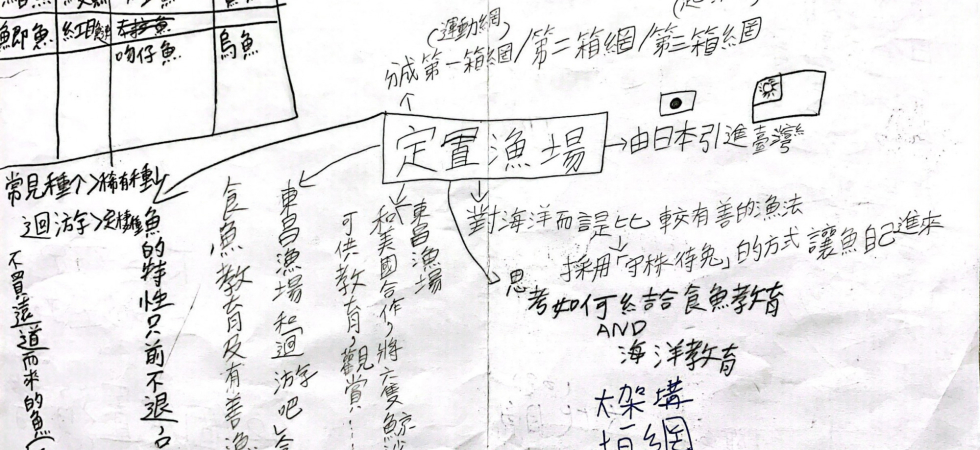 鯽魚
吻仔魚
烏魚
(運動網)
第一箱網/第二箱網/第三箱網
定置漁場
→由日本引進臺灣
常見種>稀有種
迴游>
不買遠道而來的魚
魚的特性只前不退
食魚教育及有善漁
東昌漁場和迴游吧
可供教育,觀賞……
和美國合作,將六隻鯨
東昌漁場
對海洋而言是比較有善的漁法
採用「守株待兔」的方式讓魚自己進來
思考如何結合食魚教育
AND
海洋教育
大架構
垣網